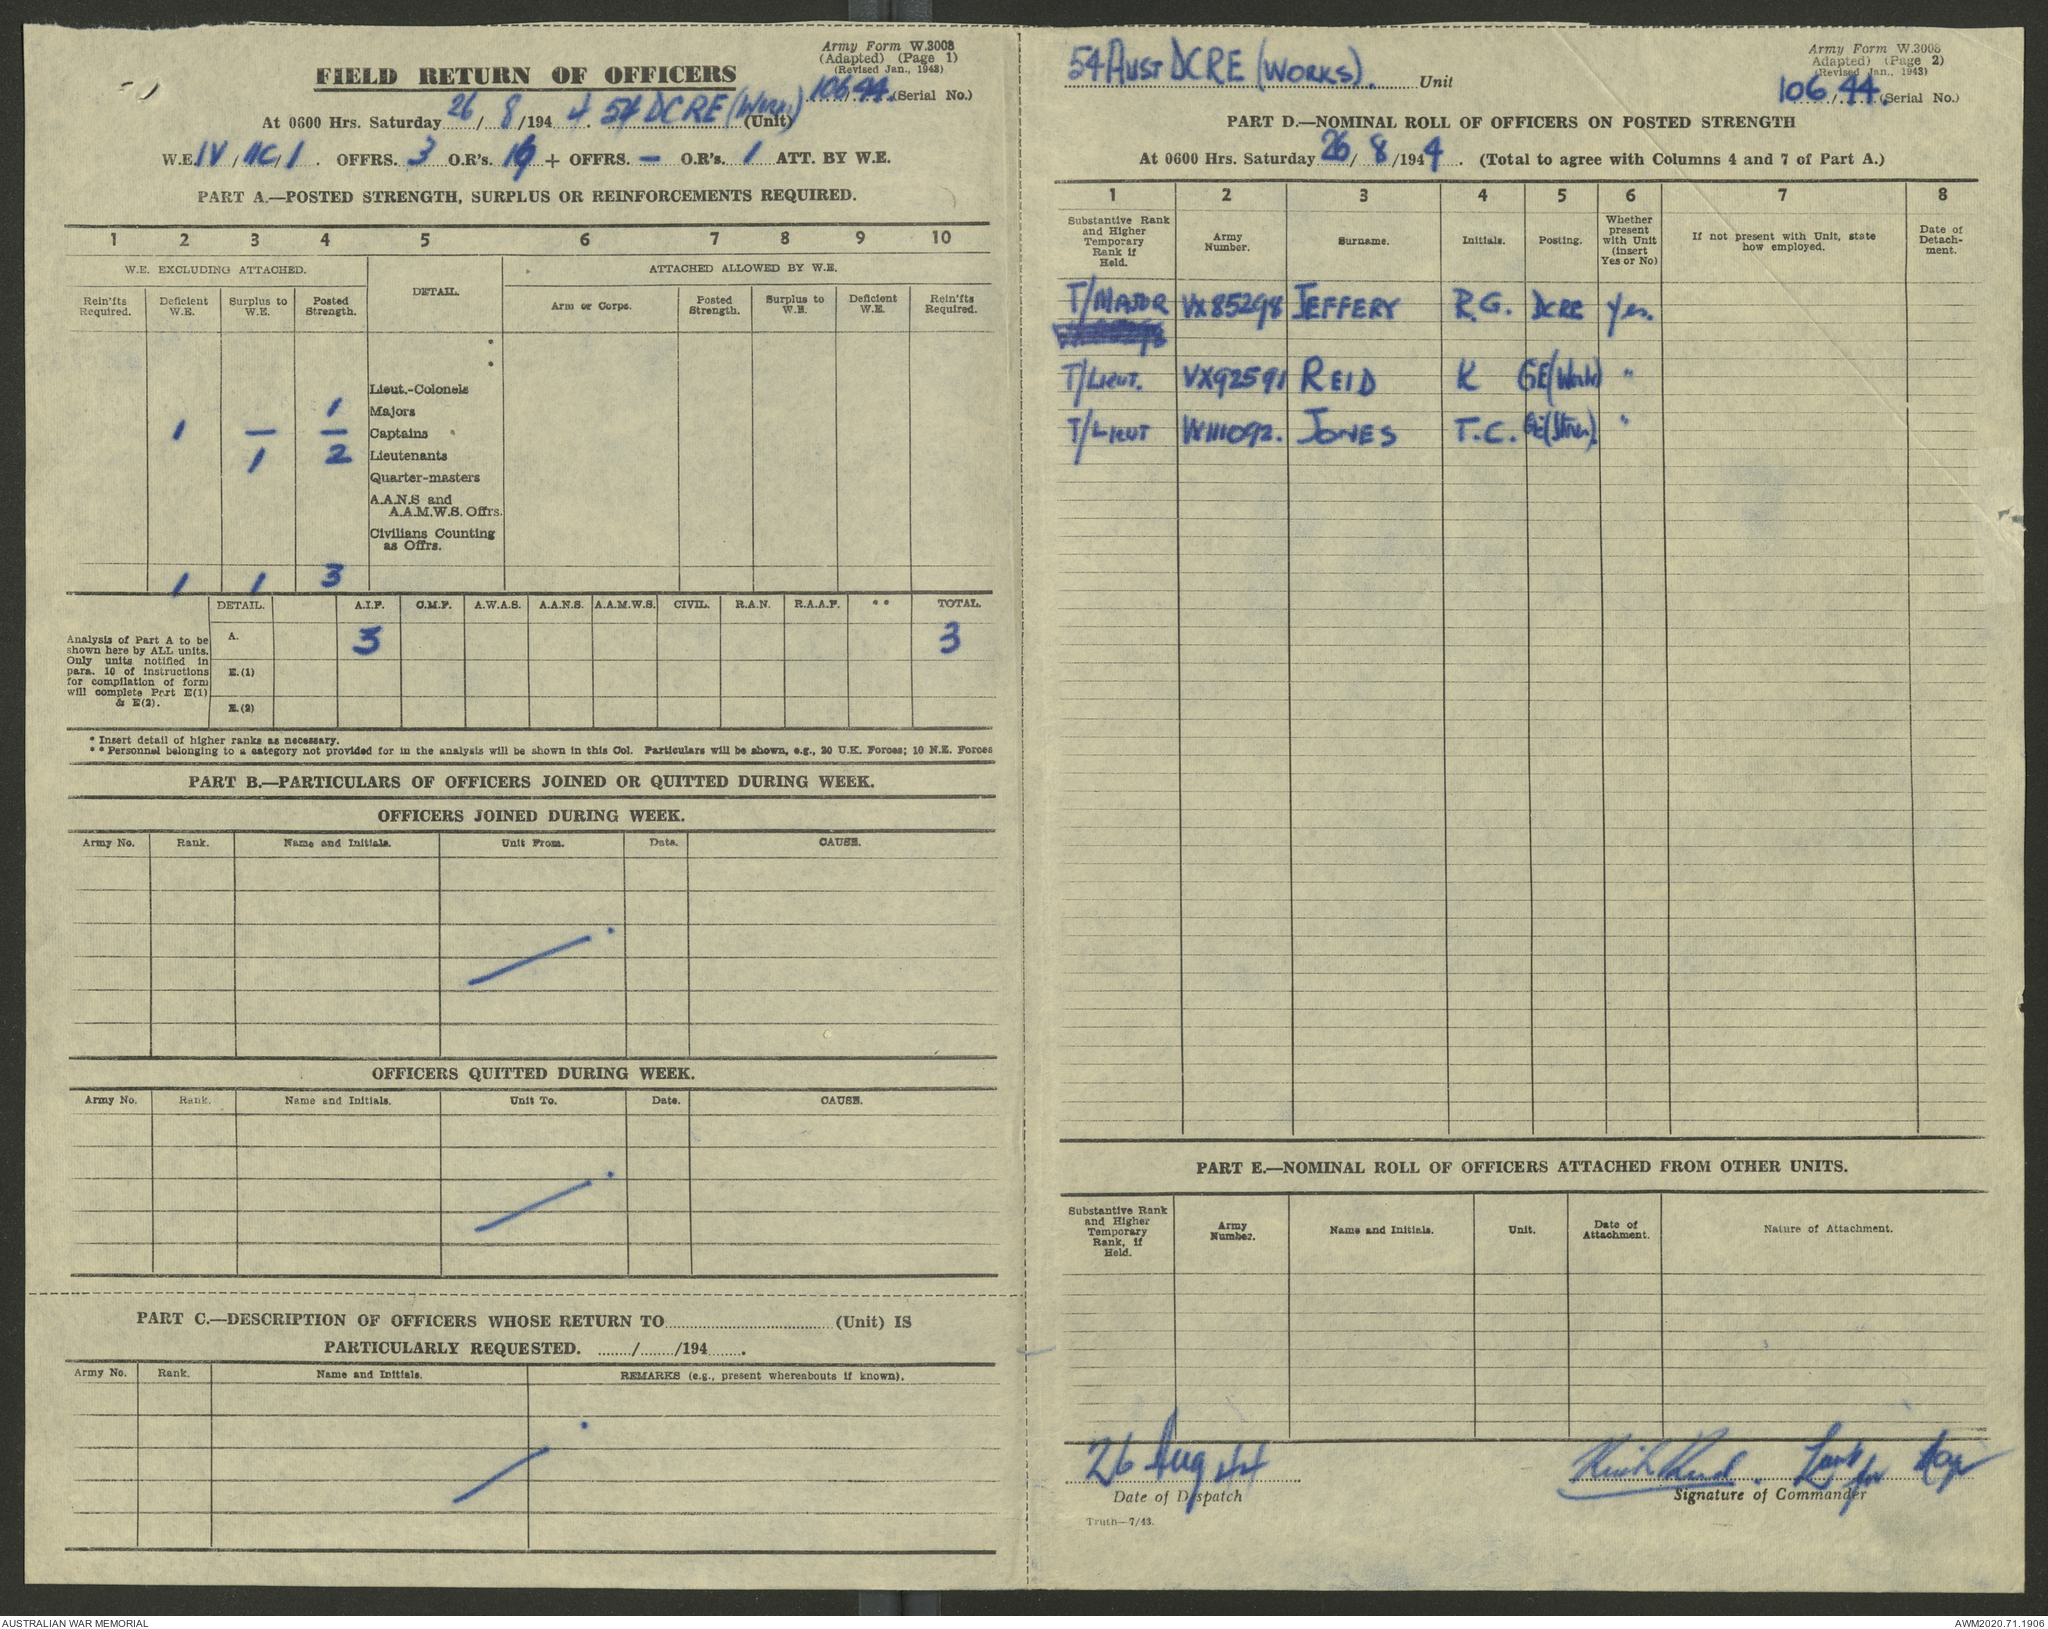 Army Form W.3008
(Adapted) (Page 1)
(Revised Jan., 1943)
FIELD RETURN OF OFFICERS
106/44 (Serial No.)
At 0600 Hrs. Saturday 26/8/1944. 54 DCRE (Works) (Unit)
W.E. IV/11C/1. OFFRS. 3 O.R's. + OFFRS. — O.R's. 1 ATT. BY W.E.
PART A.—POSTED STRENGTH, SURPLUS OR REINFORCEMENTS REQUIRED.
1 2 3 4 5 6 7 8 9 10
W.E. EXCLUDING ATTACHED. DETAIL. ATTACHED ALLOWED BY W.E.
Rein'fts Required. Deficient W.E. Surplus to W.E. Posted Strength. Arm or Corps. Posted Strength. Surplus to W.E. Deficient W.E. Rein'fts Required.
*
*
Lieut.-Colonels
1 Majors
1 — — Captains
1 2 Lieutenants
Quarter-masters
A.A.N.S and
A.A.M.W.S. Offrs.
Civilians Counting
as Offrs.
1 1 3
DETAIL. A.I.F. C.M.F. A.W.A.S. A.A.N.S. A.A.M.W.S. CIVIL. R.A.N. R.A.A.F. ** TOTAL.
Analysis of Part A to be
shown here by ALL units.
Only units notified in
para. 10 of instructions
for compilation of form
will complete Part E(1)
& E(2).
A. 3 3
E.(1)
E.(2)
* Insert detail of higher ranks as necessary.
** Personnel belonging to a category not provided for in the analysis will be shown in this Col. Particulars will be shown, e.g., 20 U.K. Forces; 10 N.E. Forces
PART B.—PARTICULARS OF OFFICERS JOINED OR QUITTED DURING WEEK.
OFFICERS JOINED DURING WEEK.
Army No. Rank. Name and Initials. Unit From. Date. CAUSE.
OFFICERS QUITTED DURING WEEK.
Army No. Rank. Name and Initials. Unit To. Date. CAUSE.
PART C.—DESCRIPTION OF OFFICERS WHOSE RETURN TO..............(Unit) IS
PARTICULARLY REQUESTED. ......./......./194.......
Army No. Rank. Name and Initials. REMARKS (e.g., present whereabouts if known).
Army Form W.3008
Adapted) (Page 2)
(Revised Jan., 1943)
54 Aust DCRE (Works). Unit
106/44. (Serial No.)
PART D.—NOMINAL ROLL OF OFFICERS ON POSTED STRENGTH
At 0600 Hrs. Saturday 26/8/1944. (Total to agree with Columns 4 and 7 of Part A.)
1 2 3 4 5 6 7 8
Substantive Rank and Higher Temporary Rank if Held. Army Number. Surname. Initials. Posting. Whether present with Unit (insert Yes or No) If not present with Unit, state how employed. Date of Detach- ment.
T/MAJOR VX85298 JEFFERY R.G. DCRE Yes.
T/LIEUT. VX92591 REID K GE(Works) "
T/LIEUT JONES T.C. "
PART E.—NOMINAL ROLL OF OFFICERS ATTACHED FROM OTHER UNITS.
Substantive Rank and Higher Temporary Rank, if Held. Army Number. Name and Initials. Unit. Date of Attachment. Nature of Attachment.
26 Aug 44
Date of Dispatch
for
Signature of Commander
Truth—7/43.
AUSTRALIAN WAR MEMORIAL
AWM2020.71.1906